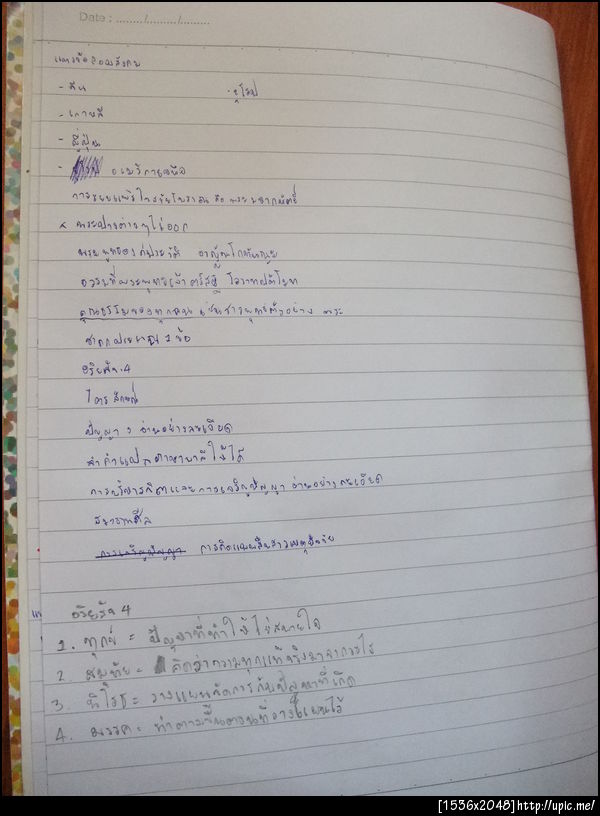 Date : ......../........./.........
แนวข้อสอบสังคม
- จีน - ยุโรป
- เกาหลี
- ญี่ปุ่น
- อเมริกาเหนือ
การเผยแผ่ใน
พระ ต่างๆ ไม่ออก
อัญญาโกณฑัญญะ
วันที่พระพุทธเจ้าตรัสรู้ โอวาทปาติโมกข์
คุณธรรมของทุกคน เช่นชาวพุทธตัวอย่าง พระ
ชาดก 2 ข้อ
อริยสัจ 4
ไตรลักษณ์
ปัญญา 3 อ่านอย่างละเอียด
จำคำแปลภาษาบาลีให้ได้
การบริหารจิตและการเจริญปัญญา อ่านอย่างละเอียด
สมาทานศีล
การเจริญปัญญา การคิดแบบสืบสาวเหตุปัจจัย
อริยสัจ 4
1. ทุกข์ = ปัญหาที่ทำให้ไม่สบายใจ
2. สมุทัย = คิดว่าความทุกข์แท้จริงมาจากอะไร
3. นิโรธ = วางแผนจัดการกับปัญหาที่เกิด
4. มรรค = ทำตามขั้นตอนที่วางแผนไว้
[1536x2048]http://upic.me/